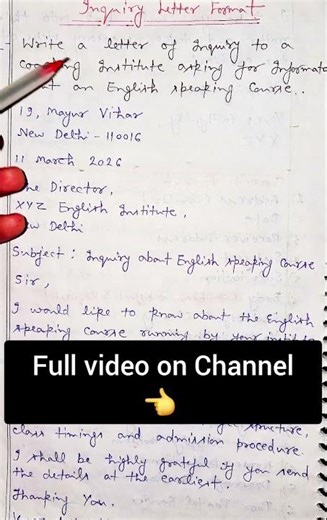 Inquiry Letter Format
Write a letter of Inquiry to a
Institute asking for
an English speaking Course..
19, Mayur Vihar
New Delhi - 110016
11 March 2026
Director,
XYZ English Institute,
Delhi
Subject : Inquiry about English speaking Course
Sir,
I would like to know about the English
speaking Course running by your
Full video on Channel
👈
structure,
class timings and admission procedure.
I shall be highly grateful if you send
the details at the earliest.
Thanking You.